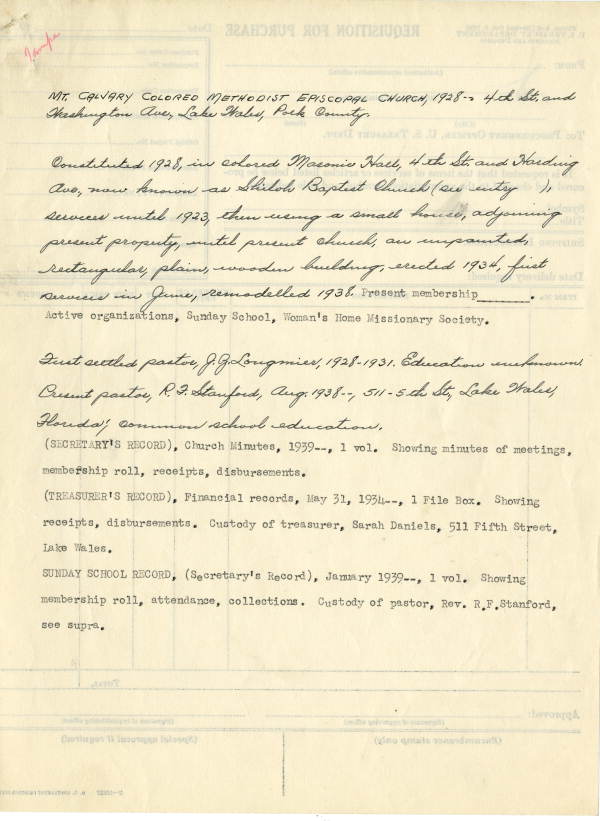 Tampa
MT. CALVARY COLORED METHODIST EPISCOPAL CHURCH, 1928-- 4th St. and
Washington Ave., Lake Wales, Polk County.
Constituted 1928, in colored Masonic Hall, 4th St. and Harding
Ave., now known as Shiloh Baptist Church (see entry ),
services until 1923, then using a small house, adjoining
present property, until present church, an unpainted,
rectangular, plain, wooden building, erected 1934, first
services in June, remodelled 1938. Present membership_______.
Active organizations, Sunday School, Woman's Home Missionary Society.
First settled pastor, J.G. Longmier, 1928-1931. Education unknown.
Present pastor, R.F. Stanford, Aug. 1938--, 511-5th St., Lake Wales,
Florida; common school education.
(SECRETARY'S RECORD), Church Minutes, 1939--, 1 vol. Showing minutes of meetings,
membership roll, receipts, disbursements.
(TREASURER'S RECORD), Financial records, May 31, 1934--, 1 File Box. Showing
receipts, disbursements. Custody of treasurer, Sarah Daniels, 511 Fifth Street,
Lake Wales.
SUNDAY SCHOOL RECORD, (Secretary's Record), January 1939--, 1 vol. Showing
membership roll, attendance, collections. Custody of pastor, Rev. R.F.Stanford,
see supra.